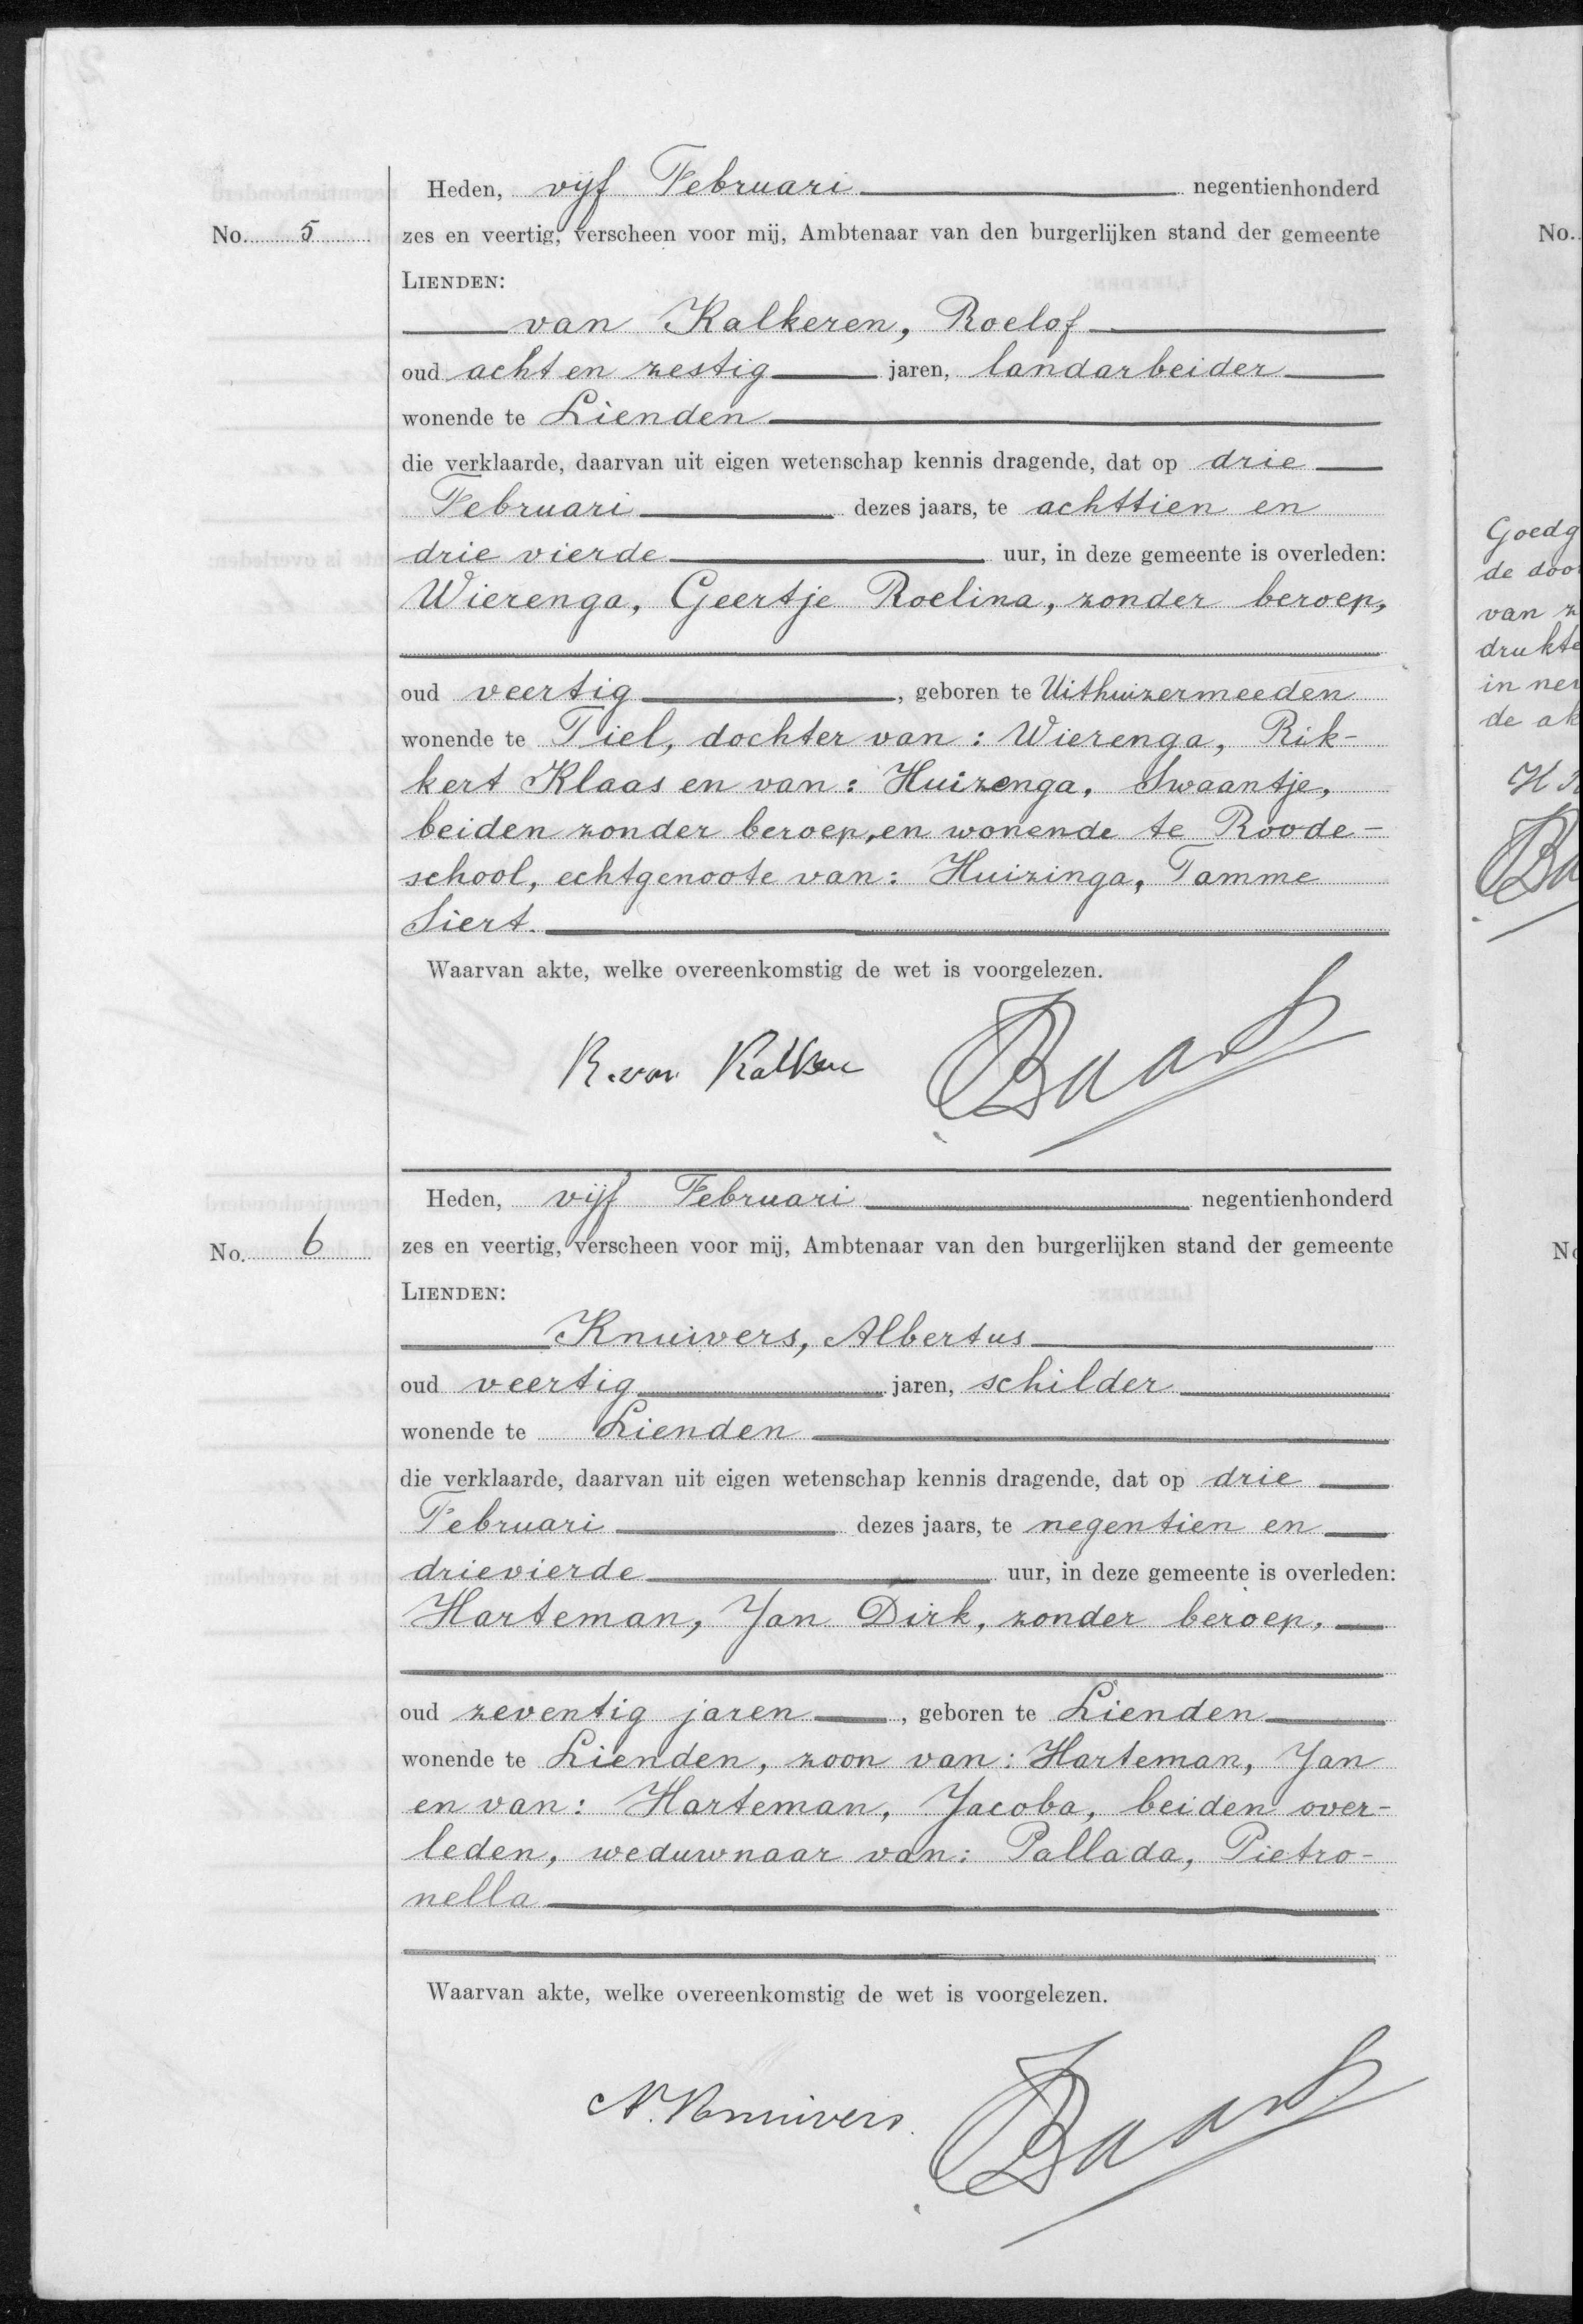 Heden, vijf Februari negentienhonderd
No. 5 zes en veertig, verscheen voor mij, Ambtenaar van den burgerlijken stand der gemeente
LIENDEN:
van Kalkeren, Roelof
oud acht en zestig jaren, landarbeider
wonende te Lienden
die verklaarde, daarvan uit eigen wetenschap kennis dragende, dat op drie
Februari dezes jaars, te achttien en
drie vierde uur, in deze gemeente is overleden:
Wierenga, Geertje Roelina, zonder beroep,
oud veertig, geboren te Uithuizermeeden
wonende te Tiel, dochter van: Wierenga, Rik-
kert Klaas en van: Huizenga, Swaantje,
beiden zonder beroep, en wonende te Roode-
school, echtgenoote van: Huizinga, Tamme
Siert.
Waarvan akte, welke overeenkomstig de wet is voorgelezen.
R. van
Heden, vijf Februari negentienhonderd
No. 6 zes en veertig, verscheen voor mij, Ambtenaar van den burgerlijken stand der gemeente
LIENDEN:
Knuivers, Albertus
oud veertig jaren, schilder
wonende te Lienden
die verklaarde, daarvan uit eigen wetenschap kennis dragende, dat op drie
Februari dezes jaars, te negentien en
drievierde uur, in deze gemeente is overleden:
Harteman, Jan Dirk, zonder beroep,
oud zeventig jaren, geboren te Lienden
wonende te Lienden, zoon van: Harteman, Jan
en van: Harteman, Jacoba, beiden over-
leden, weduwnaar van: Pallada, Pietro-
nella
Waarvan akte, welke overeenkomstig de wet is voorgelezen.
A. Knuivers.
No.
Goedg
de doo
van z
drukte
in ne
de ak